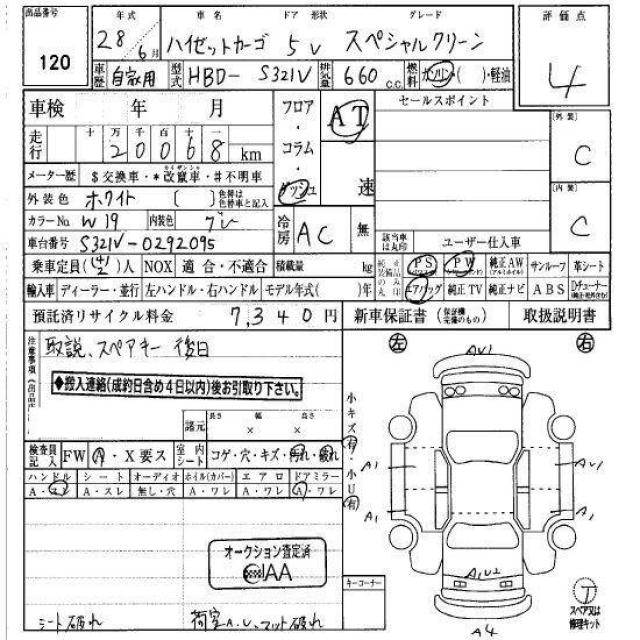 出品番号
120
年式
28年6月
車名
ハイゼットカーゴ
ドア 形状
5V
グレード
スペシャルクリーン
評価点
4
車歴
自家用
型式
HBD- S321V
排気量
660 C.C.
燃料
ガソリン( )・軽油
車検 年 月
走行
十 万 千 百 十 一
20068 km
メーター歴 $ 交換車・* 改竄車・# 不明車
外装色 ホワイト [ ] 色替は色替車と記入
カラーNo. W19
内装色 グレー
車台番号 S321V-0292095
フロア・コラム・ダッシュ
AT
速
冷房 AC 無
セールスポイント
[外装]
C
[内装]
C
該当車は丸印
ユーザー仕入車
乗車定員(4/2)人 NOX 適合・不適合 積載量 kg
純正装備品のみ丸印
PS PW 純正AW サンルーフ 革シート
輸入車 ディーラー・並行 左ハンドル・右ハンドル モデル年式( )年
エアバッグ 純正TV 純正ナビ ABS Dチューナー
預託済リサイクル料金 7,340円
新車保証書 取扱説明書
注意事項
取説、スペアキー 後日
◆搬入連絡(成約日含め4日以内)後お引取り下さい。
諸元 長さ 幅 高さ
× ×
検査員記入 FW A・X要ス
室内シート コゲ・穴・キズ・汚れ・破れ
ハンドル シート オーディオ ホイル(カバー) エアロ ドアミラー
A・スレ A・スレ 無し・穴 A・ワレ A・ワレ A・ワレ
オークション査定済
JAA
シート破れ
荷室A.U、マット破れ
小キズ有・小U有
キーコーナー
左 右
AU1
A1 AU1
A1 A1
AU2
A4
スペアタイヤ又は修理キット